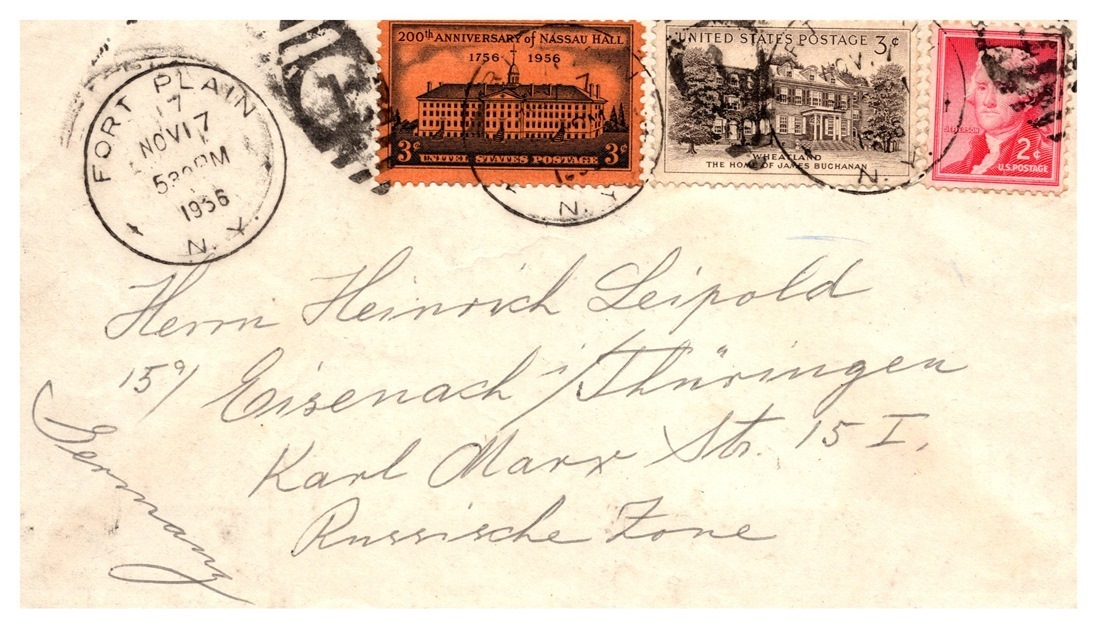 FORT PLAIN
17
NOV 17
530PM
1956
N.Y.
200th ANNIVERSARY of NASSAU HALL
1756 1956
3¢ UNITED STATES POSTAGE 3¢
UNITED STATES POSTAGE 3¢
WHEATLAND
THE HOME OF JAMES BUCHANAN
JEFFERSON
2¢
U.S. POSTAGE
N.Y.
N.Y.
Herrn Heinrich Leipold
Eisenach i/Thüringen
Karl Marx Str. 15 I.
Russische Zone
Germany